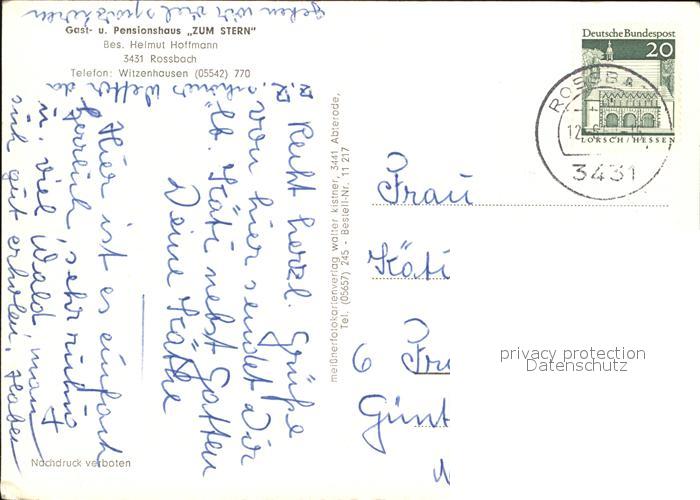 Gast- u. Pensionshaus „ZUM STERN"
Bes. Helmut Hoffmann
3431 Rossbach
Telefon: Witzenhausen (05542) 770
Recht herzl. Grüße
von hier sendet Dir
lb. Käti nebst Gatten
Deine Käthe
Hier ist es einfach
herrlich, sehr ruhig
u. viel Wald, man
sich gut erholen, haben
z.Z. schönes Wetter da
gehen wir viel spazieren
meißnerfotokartenverlag walter kistner, 3441 Abterode,
Tel. (05657) 245 - Bestell-Nr. 11 217
Nachdruck verboten
Deutsche Bundespost
20
LORSCH/HESSEN
ROSSBA
12
3431
Frau
Käti
6 Fr
Günt
privacy protection
Datenschutz